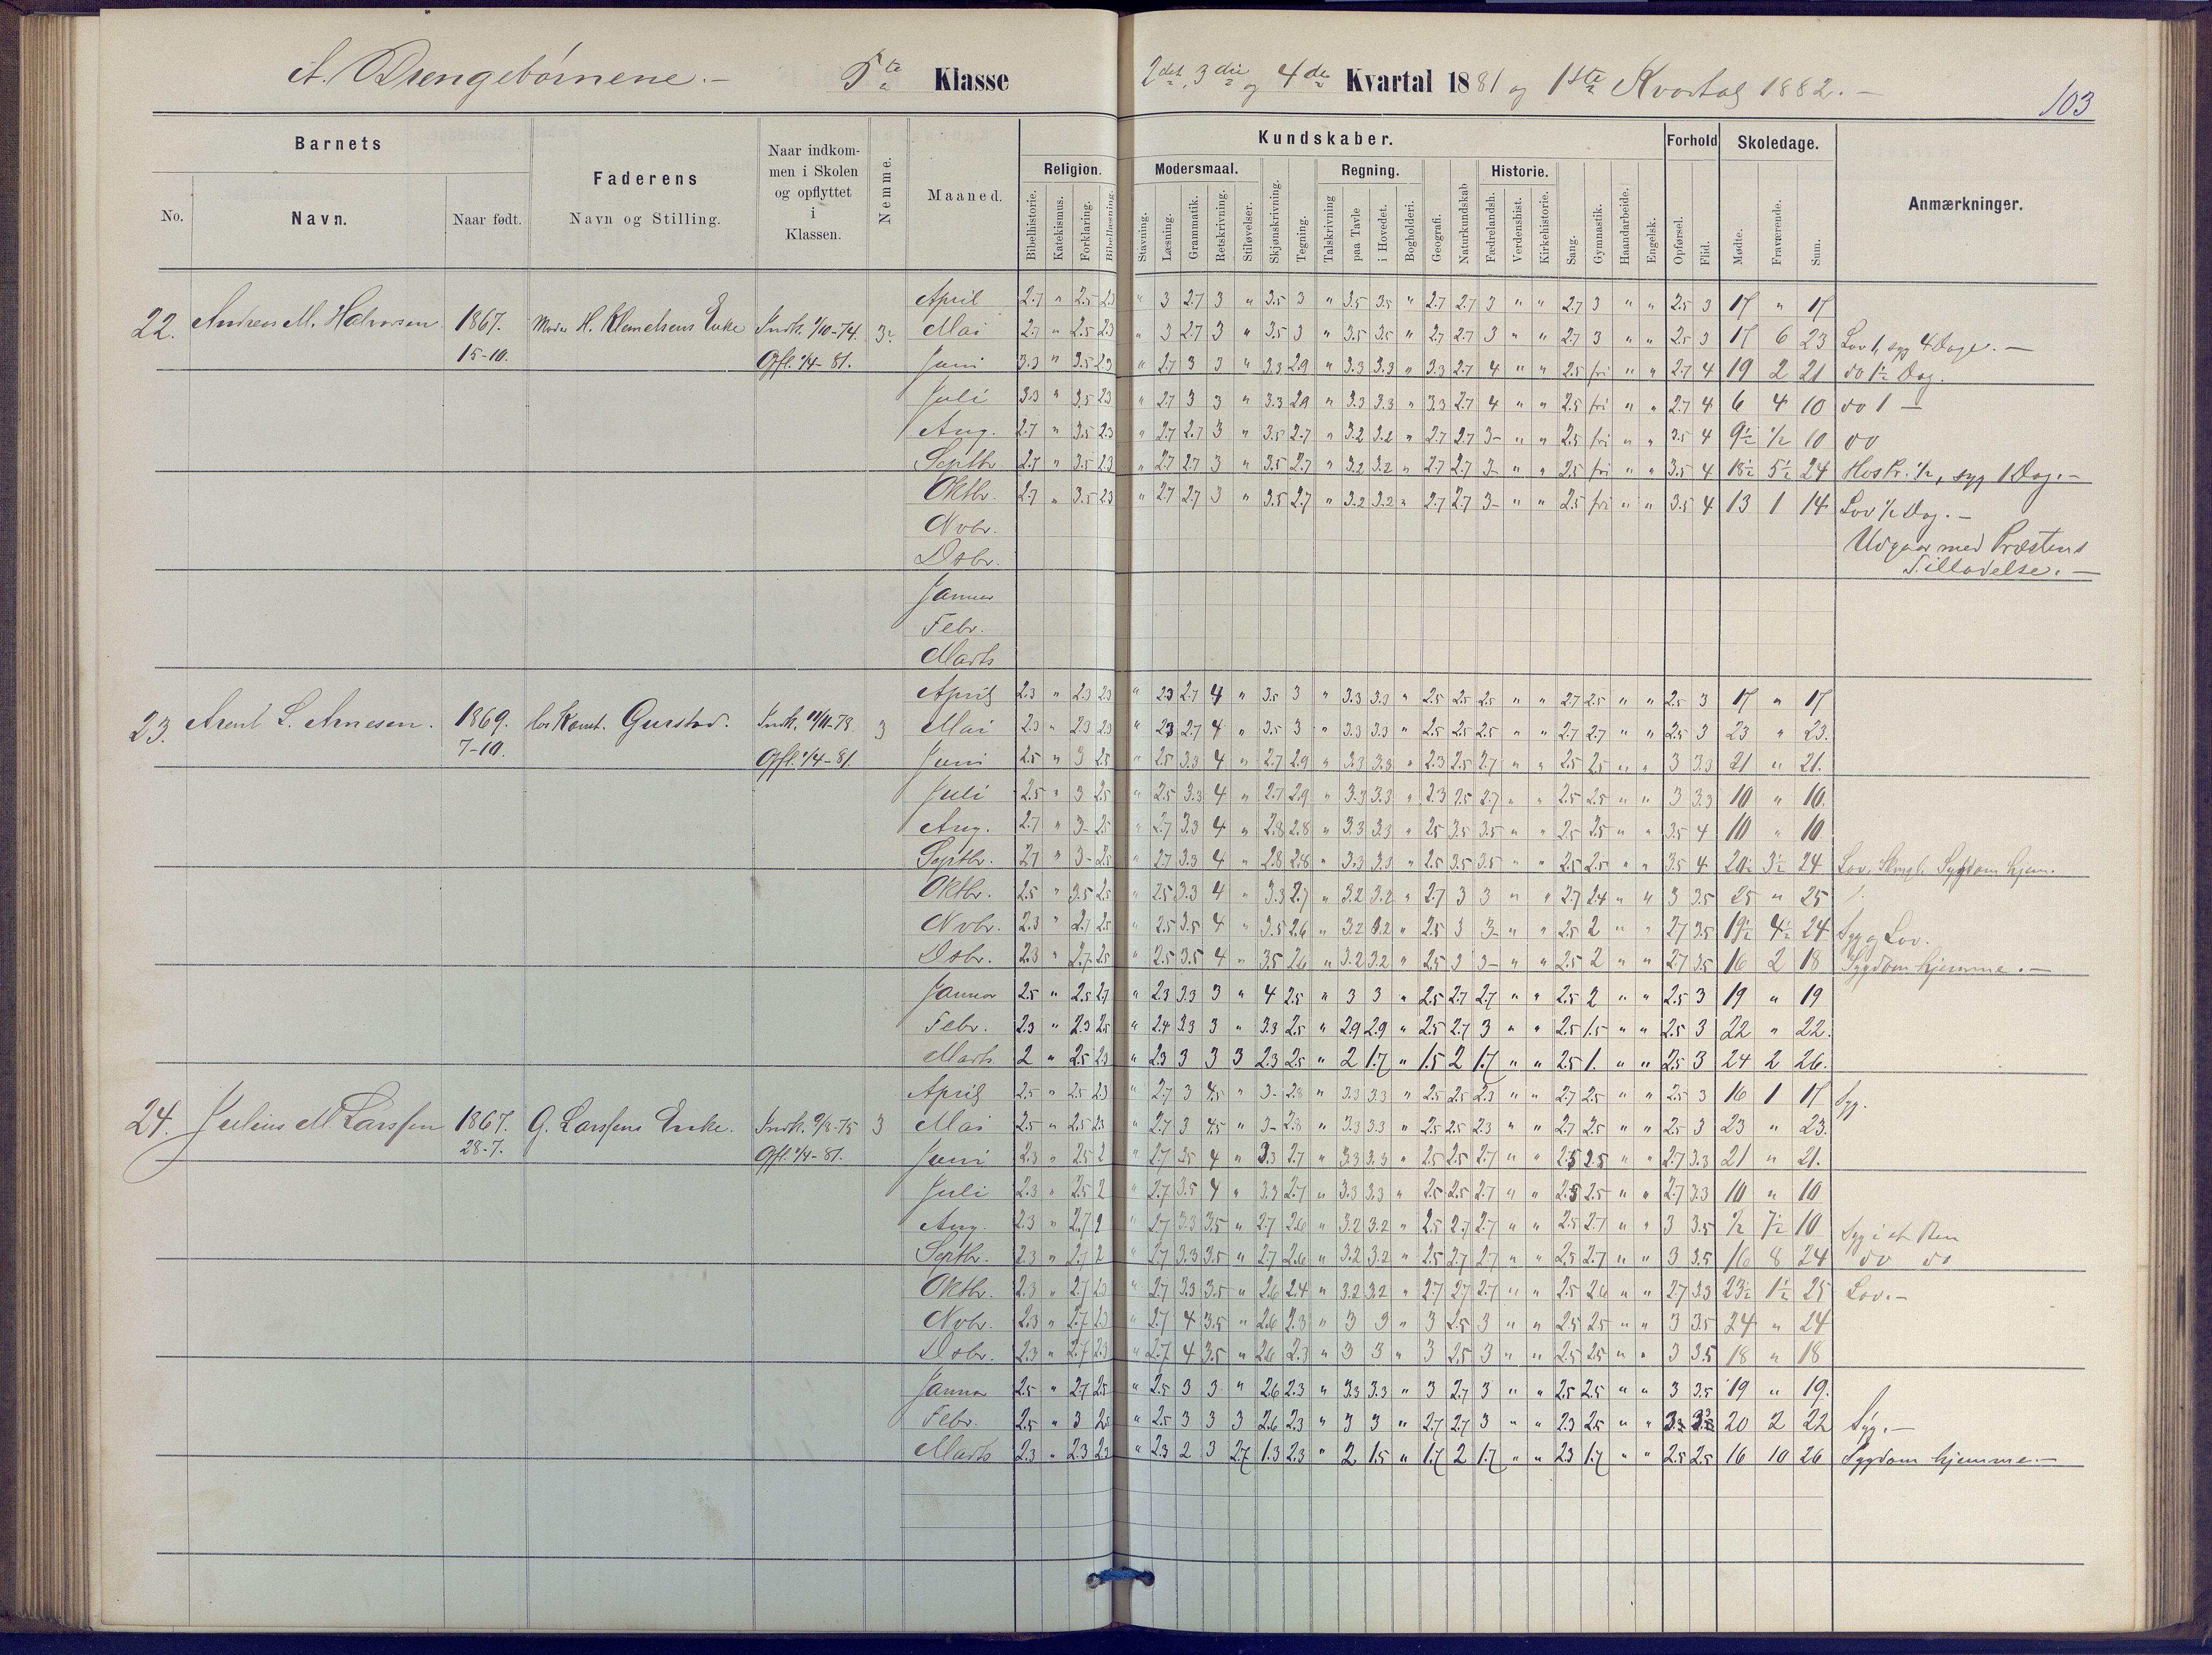 A. Drengebørnene. — 5te Klasse 2det, 3die og 4de Kvartal 1881 og 1ste Kvartal 1882. —
103
Barnets
No.
Navn.
Naar født.
Faderens
Navn og Stilling.
Naar indkom-
men i Skolen
og opflyttet
i
Klassen.
Nemme.
Maaned.
Kundskaber.
Religion.
Bibelhistorie.
Katekismus.
Forklaring.
Bibellæsning.
Modersmaal.
Stavning.
Læsning.
Grammatik.
Retskrivning.
Stiløvelser.
Skjønskrivning.
Tegning.
Regning.
Talskrivning
paa Tavle
i Hovedet.
Bogholderi.
Geografi.
Naturkundskab
Historie.
Fædrelandsh.
Verdenshist.
Kirkehistorie.
Sang.
Gymnastik.
Haandarbeide.
Engelsk.
Forhold
Opførsel.
Flid.
Skoledage.
Mødte.
Fraværende.
Sum.
Anmærkninger.
22. Andreas M. Halvorsen 1867. 15-10. Moder H. Klemetsens Enke Indk. 1/10-74. Opfl. 1/4-81.
April 2.7 " 2.5 2.3 " 3 2.7 3 " 3.5 3 " 3.5 3.5 " 2.7 2.7 3 " " 2.7 3 " " 2.5 3 17 " 17
Mai 2.7 " 2.5 2.3 " 3 2.7 3 " 3.5 3 " 3.5 3.5 " 2.7 2.7 3 " " 2.7 3 " " 2.5 3 17 6 23 Lov 1, syg 4 Dage. —
Juni 3.3 " 3.5 2.3 " 2.7 3 3 " 3.3 2.9 " 3.3 3.3 " 3.3 2.7 4 " " 2.5 fri " " 2.7 4 19 2 21 do 1½ Dag.
Juli 3.3 " 3.5 2.3 " 2.7 3 3 " 3.3 2.9 " 3.3 3.3 " 3.3 2.7 4 " " 2.5 fri " " 2.7 4 6 4 10 do 1 —
Aug. 2.7 " 3.5 2.3 " 2.7 2.7 3 " 3.5 2.7 " 3.2 3.2 " 2.7 2.7 3- " " 2.5 fri " " 3.5 4 9½ ½ 10 do
Septbr. 2.7 " 3.5 2.3 " 2.7 2.7 3 " 3.5 2.7 " 3.2 3.2 " 2.7 2.7 3- " " 2.5 fri " " 3.5 4 18½ 5½ 24 Hos Pr. ½, syg 1 Dag. —
Oktbr. 2.7 " 3.5 2.3 " 2.7 2.7 3 " 3.5 2.7 " 3.2 3.2 " 2.7 2.7 3- " " 2.5 fri " " 3.5 4 13 1 14 Lov ½ Dag. —
Novbr.
Udgaar med Præstens
Dsbr.
Tilladelse. —
Januar
Febr.
Marts
23. Arent L. Arnesen. 1869. 7-10. hos Kaut. Gurstad. Opfl. 1/4-81. 3
April 2.3 " 2.3 2.3 " 2.3 2.7 4 " 3.5 3 " 3.3 3.3 " 2.5 2.5 2.5 " " 2.7 2.5 " " 2.5 3 17 " 17
Mai 2.3 " 2.3 2.3 " 2.3 2.7 4 " 3.5 3 " 3.3 3.3 " 2.5 2.5 2.5 " " 2.7 2.7 " " 2.5 3 23 " 23.
Juni 2.5 " 3 2.5 " 2.5 3.3 4 " 2.7 2.9 " 3.3 3.3 " 2.3 2.5 2.7 " " 2.5 2.5 " " 3 3.3 21 " 21.
Juli 2.5 " 3 2.5 " 2.5 3.3 4 " 2.7 2.9 " 3.3 3.3 " 2.3 2.5 2.7 " " 2.5 2.5 " " 3 3.3 10 " 10.
Aug. 2.7 " 3- 2.5 " 2.7 3.3 4 " 2.8 2.8 " 3.3 3.3 " 2.5 3.5 3.5 " " 2.5 2.5 " " 3.5 4 10 " 10.
Septbr. 2.7 " 3- 2.5 " 2.7 3.3 4 " 2.8 2.8 " 3.3 3.3 " 2.5 3.5 3.5 " " 2.5 2.5 " " 3.5 4 20½ 3½ 24 Lov, Sygdom hjem.
Oktbr. 2.5 " 3.5 2.5 " 2.5 3.3 4 " 3.3 2.7 " 3.2 3.2 " 2.7 3 3 " " 2.7 2.4 " " 3 3.5 25 " 25
Novbr. 2.3 " 2.7 2.5 " 2.5 3.5 4 " 3.5 2.6 " 3.2 3.2 " 2.5 3 3- " " 2.5 2 " " 2.7 3.5 19½ 4½ 24 Syg og Lov.
Dsbr. 2.3 " 2.7 2.5 " 2.5 3.5 4 " 3.5 2.6 " 3.2 3.2 " 2.5 3 3- " " 2.5 2 " " 2.7 3.5 16 2 18 Sygdom hjemme. —
Januar 2.5 " 2.5 2.7 " 2.3 3.3 3 " 4 2.5 " 3 3 " 2.5 2.7 2.7 " " 2.5 2 " " 2.5 3 19 " 19
Febr. 2.3 " 2.3 2.5 " 2.4 3.3 3 " 3.3 2.5 " 2.9 2.9 " 2.5 2.7 3 " " 2.5 1.5 " " 2.5 3 22 " 22.
Marts 2 " 2.5 2.3 " 2.3 3 3 3 2.3 2.5 " 2 1.7 " 1.5 2 1.7 " " 2.5 1. " " 2.5 3 24 2 26.
24. Julius M. Larssen 1867. 28-7. G. Larssens Enke. Indk. 9/3-75 Opfl. 1/4-81. 3
April 2.5 " 2.5 2.3 " 2.7 3 4.5 " 3- 2.8 " 3.3 3.3 " 2.5 2.5 2.3 " " 2.7 2.5 " " 2.5 3 16 1 17 Syg.
Mai 2.5 " 2.5 2.3 " 2.7 3 4.5 " 3- 2.8 " 3.3 3.3 " 2.5 2.5 2.3 " " 2.7 2.5 " " 2.5 3 23 " 23.
Juni 2.3 " 2.5 2 " 2.7 3.5 4 " 3.3 2.7 " 3.3 3.3 " 2.5 2.5 2.7 " " 2.5 2.5 " " 2.7 3.3 21 " 21.
Juli 2.3 " 2.5 2 " 2.7 3.5 4 " 3.3 2.7 " 3.3 3.3 " 2.5 2.5 2.7 " " 2.5 2.5 " " 2.7 3.3 10 " 10
Aug. 2.3 " 2.7 2 " 2.7 3.3 3.5 " 2.7 2.6 " 3.2 3.2 " 2.5 2.7 2.7 " " 2.5 2.7 " " 3 3.5 7½ 10 Syg i et Ben
Septbr. 2.3 " 2.7 2 " 2.7 3.3 3.5 " 2.7 2.6 " 3.2 3.2 " 2.5 2.7 2.7 " " 2.5 2.7 " " 3 3.5 16 8 24 do do
Oktbr. 2.3 " 2.7 2.3 " 2.7 3.3 3.5 " 2.6 2.4 " 3.2 3.2 " 2.7 2.7 2.7 " " 2.5 2.6 " " 2.7 3.3 23½ 1½ 25 Lov. —
Novbr. 2.3 " 2.7 2.3 " 2.7 4 3.5 " 2.6 2.3 " 3 3 " 3 2.5 3 " " 2.5 2.5 " " 3 3.5 24 " 24
Dsbr. 2.3 " 2.7 2.3 " 2.7 4 3.5 " 2.6 2.3 " 3 3 " 3 2.5 3 " " 2.5 2.5 " " 3 3.5 18 " 18
Januar 2.5 " 2.7 2.5 " 2.5 3 3 " 2.6 2.3 " 3.3 3.3 " 3 2.7 3 " " 2.5 2.5 " " 3 3.5 19 " 19.
Febr. 2.5 " 3 2.5 " 2.5 3 3 3 2.6 2.3 " 3 3 " 2.7 2.7 3 " " 2.3 2.5 " " 20 2 22 Syg. —
Marts 2.3 " 2.3 2.3 " 2.3 2 3 2.7 1.3 2.3 " 2 1.5 " 1.7 2 1.7 " " 2.3 1.7 " " 2.5 2.5 16 10 26 Sygdom hjemme. —